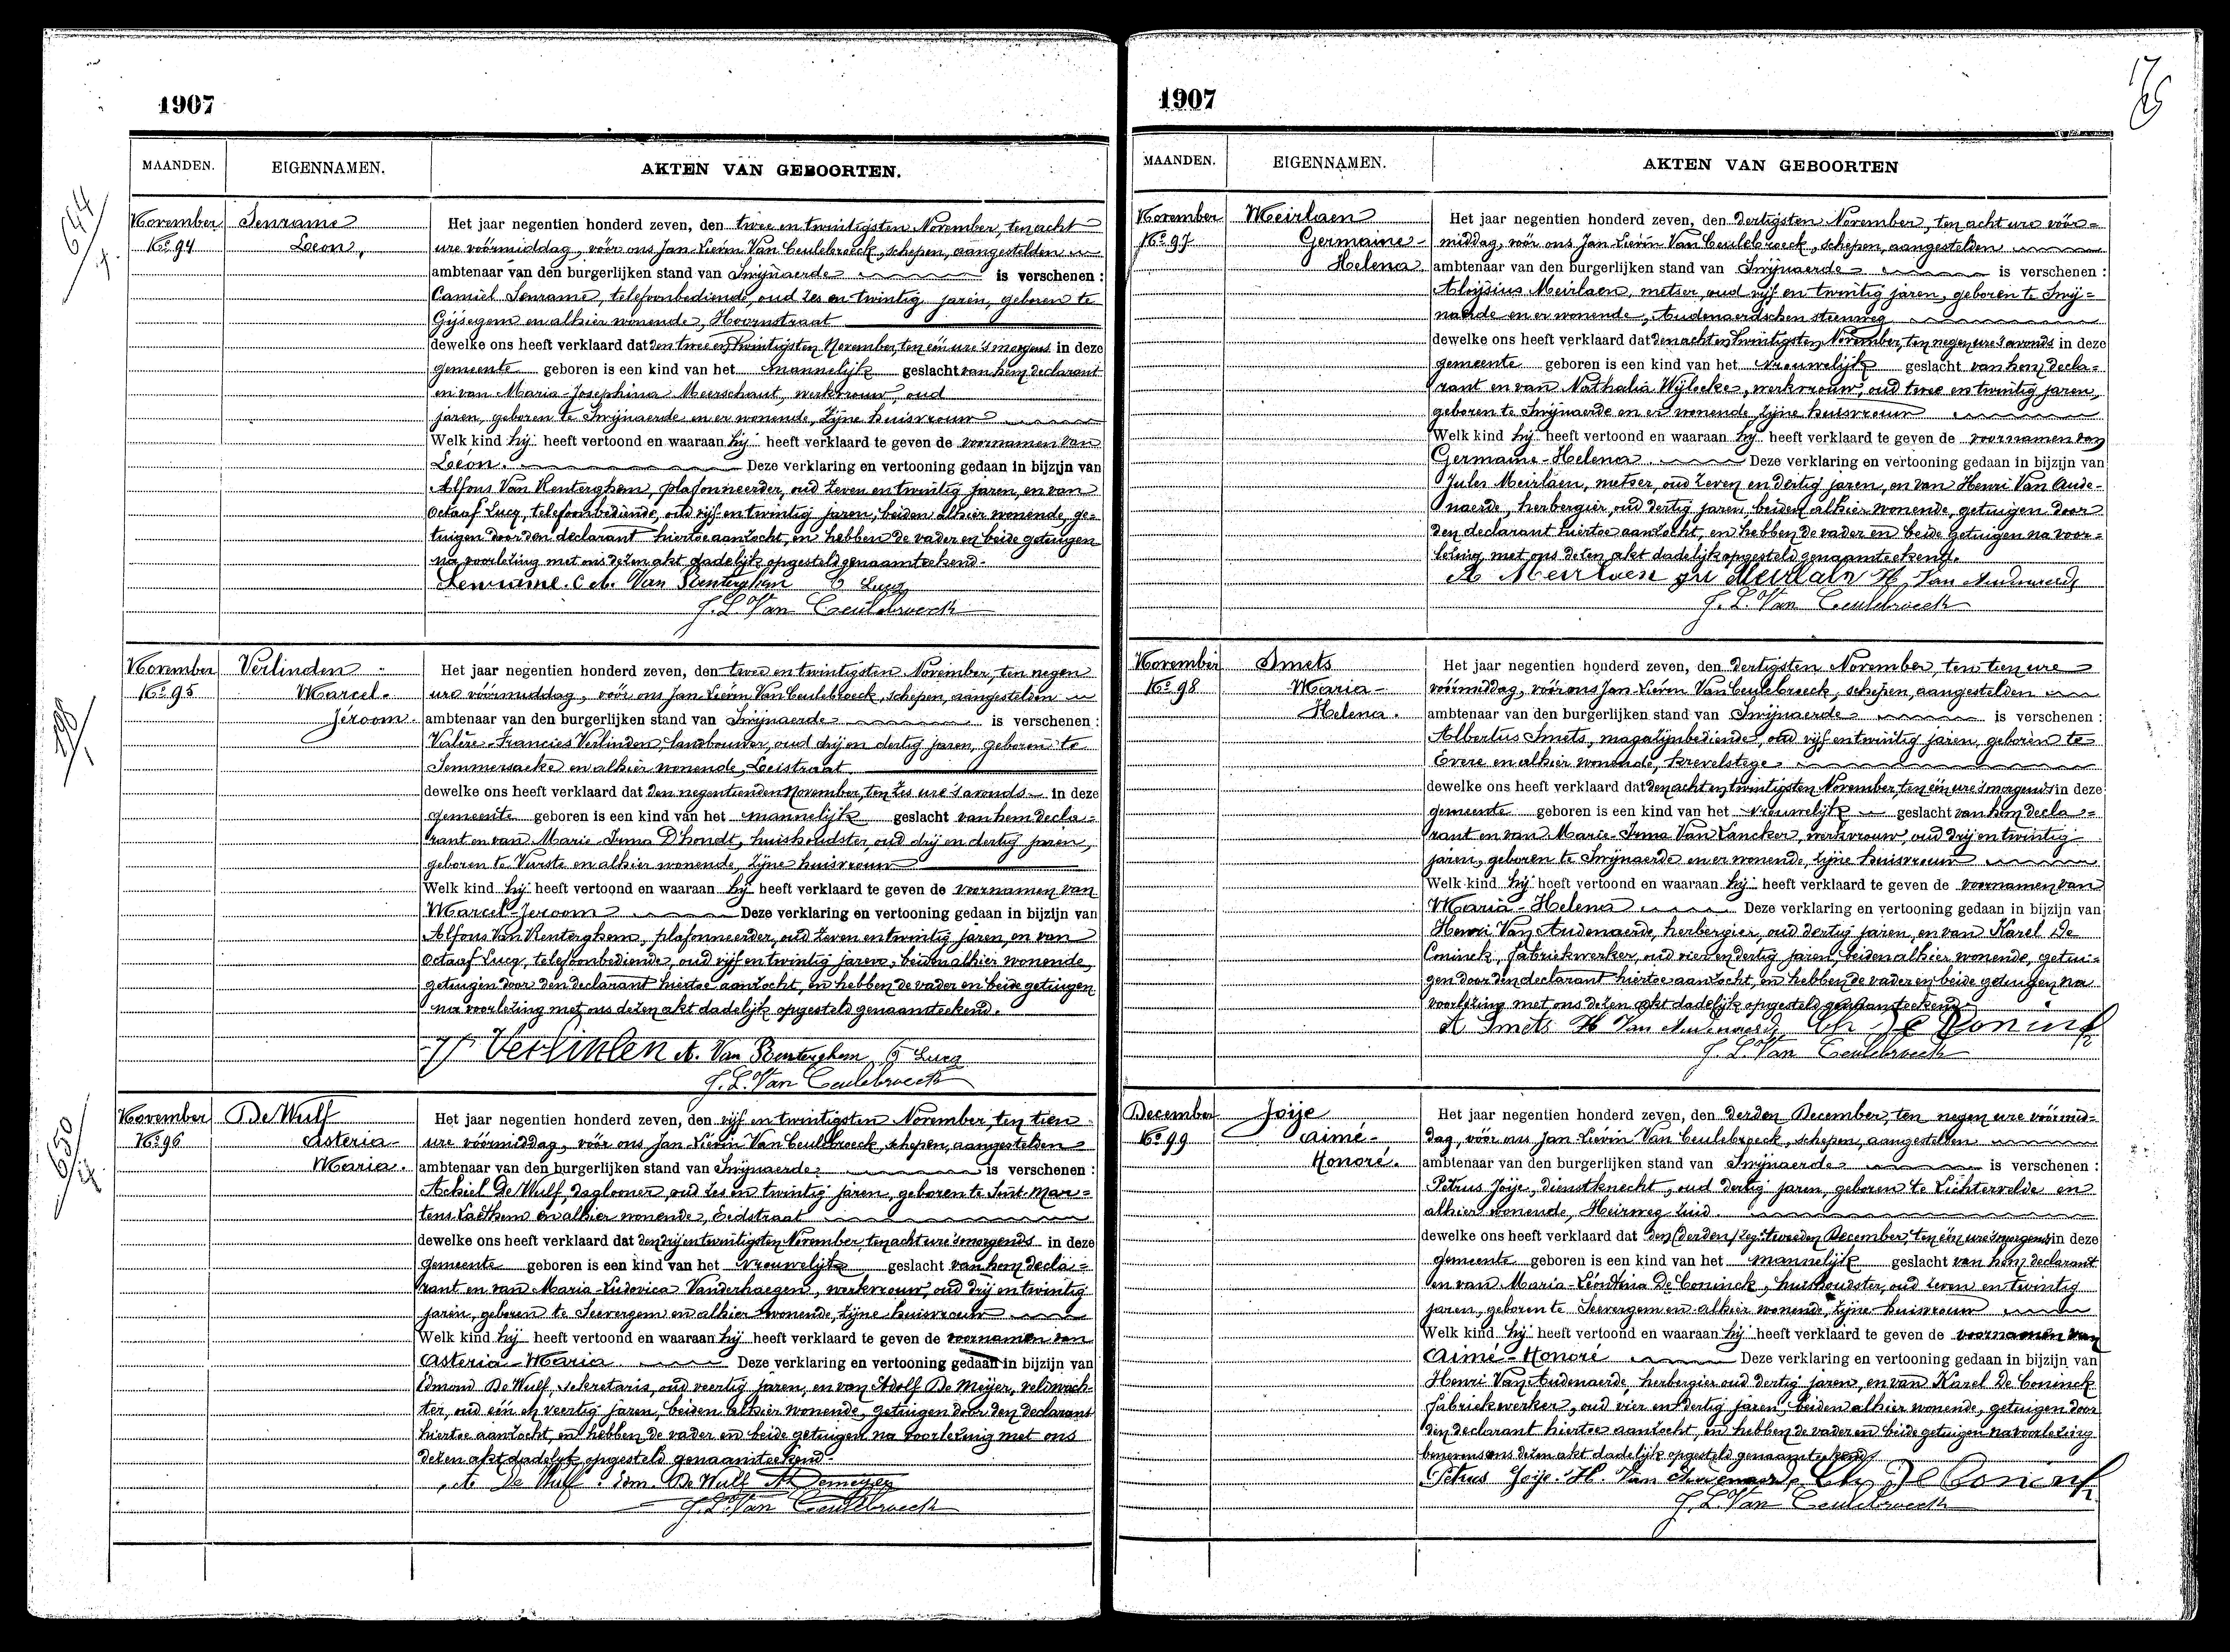 1907
MAANDEN. EIGENNAMEN. AKTEN VAN GEBOORTEN.
644
November Lenrame Het jaar negentien honderd zeven, den twee en twintigsten November, ten acht
No 94 Leon, ure vóórmiddag, vóór ons Jan Lievin Van Ceulebroeck, schepen, aangestelden
ambtenaar van den burgerlijken stand van Swijnaerde is verschenen :
Camiel Lenrame, telefoonbediende, oud zes en twintig jaren, geboren te
Gijsegem en alhier wonende, Hoornstraat
dewelke ons heeft verklaard dat den twee en twintigsten November, ten één ure 's morgens in deze
gemeente geboren is een kind van het mannelijk geslacht van hem declarant
en van Maria-Josephina Meerschaut, werkvrouw, oud
jaren, geboren te Swijnaerde en er wonende, zijne huisvrouw
Welk kind hij heeft vertoond en waaraan hij heeft verklaard te geven de voornamen van
Léon. Deze verklaring en vertooning gedaan in bijzijn van
Alfons Van Renterghem, plafonneerder, oud zeven en twintig jaren, en van
Octaaf Lucq, telefoonbediende, oud vijf en twintig jaren, beiden alhier wonende, ge=
tuigen door den declarant hiertoe aanzocht, en hebben de vader en beide getuigen
na voorlezing met ons dezen akt dadelijk opgesteld genaamteekend.
Lenrame. C A. Van Renterghem O Lucq
J. L. Van Ceulebroeck
798
November Verlinden Het jaar negentien honderd zeven, den twee en twintigsten November, ten negen
No 95 Marcel- ure vóórmiddag, vóór ons Jan Lievin Van Ceulebroeck, schepen, aangestelden
Jéroom. ambtenaar van den burgerlijken stand van Swijnaerde is verschenen :
Valère-Francies Verlinden, landbouwer, oud drij en dertig jaren, geboren te
Semmersaeke en alhier wonende, Leistraat
dewelke ons heeft verklaard dat den negentienden November, ten zes ure 's avonds in deze
gemeente geboren is een kind van het mannelijk geslacht van hem decla=
rant en van Marie-Irma D'hondt, huishoudster, oud drij en dertig jaren,
geboren te Vurste en alhier wonende, zijne huisvrouw
Welk kind hij heeft vertoond en waaraan hij heeft verklaard te geven de voornamen van
Marcel-Jeroom Deze verklaring en vertooning gedaan in bijzijn van
Alfons Van Renterghem, plafonneerder, oud zeven en twintig jaren, en van
Octaaf Lucq, telefoonbediende, oud vijf en twintig jaren, beiden alhier wonende,
getuigen door den declarant hiertoe aanzocht, en hebben de vader en beide getuigen
na voorlezing met ons dezen akt dadelijk opgesteld genaamteekend.
Verlinden A. Van Renterghem O Lucq
J. L. Van Ceulebroeck
650
November De Wulf Het jaar negentien honderd zeven, den vijf en twintigsten November, ten tien
No 96 Asteria- ure vóórmiddag, vóór ons Jan Lievin Van Ceulebroeck, schepen, aangestelden
Maria. ambtenaar van den burgerlijken stand van Swijnaerde is verschenen :
Achiel De Wulf, daglooner, oud zes en twintig jaren, geboren te Sint-Mar=
tens Laethem en alhier wonende, Eedstraat
dewelke ons heeft verklaard dat den drij en twintigsten November, ten acht ure 's morgends in deze
gemeente geboren is een kind van het vrouwelijk geslacht van hem decla=
rant en van Maria-Ludovica Vanderhaegen, werkvrouw, oud drij en twintig
jaren, geboren te Seevergem en alhier wonende, zijne huisvrouw
Welk kind hij heeft vertoond en waaraan hij heeft verklaard te geven de voornamen van
Asteria-Maria Deze verklaring en vertooning gedaan in bijzijn van
Edmond De Wulf, sekretaris, oud veertig jaren, en van Adolf De Meyer, veldwach-
ter, oud één en veertig jaren, beiden alhier wonende, getuigen door den declarant
hiertoe aanzocht, en hebben de vader en beide getuigen na voorlezing met ons
dezen akt dadelijk opgesteld genaamteekend.
A. De Wulf. Edm. De Wulf Ad Demeyer
J. L. Van Ceulebroeck
1907
MAANDEN. EIGENNAMEN. AKTEN VAN GEBOORTEN
November Meirlaen Het jaar negentien honderd zeven, den dertigsten November, ten acht ure vóór=
No 97 Germaine- middag, vóór ons Jan Lievin Van Ceulebroeck, schepen, aangestelden
Helena. ambtenaar van den burgerlijken stand van Swijnaerde is verschenen :
Aloÿsius Meirlaen, metser, oud vijf en twintig jaren, geboren te Swij=
naerde en er wonende, Audenaerdschen steenweg
dewelke ons heeft verklaard dat den acht en twintigsten November, ten negen ure 's avonds in deze
gemeente geboren is een kind van het vrouwelijk geslacht van hem decla=
rant en van Nathalia Wijlocke, werkvrouw, oud twee en twintig jaren,
geboren te Swijnaerde en er wonende, zijne huisvrouw
Welk kind hij heeft vertoond en waaraan hij heeft verklaard te geven de voornamen van
Germaine-Helena. Deze verklaring en vertooning gedaan in bijzijn van
Jules Meirlaen, metser, oud zeven en dertig jaren, en van Henri Van Aude-
naerde, herbergier, oud dertig jaren, beiden alhier wonende, getuigen door
den declarant hiertoe aanzocht, en hebben de vader en beide getuigen na voor=
lezing met ons dezen akt dadelijk opgesteld genaamteekend.
A Meirlaen Meirlaen H. Van Audenaerde
J. L. Van Ceulebroeck
November Smets Het jaar negentien honderd zeven, den dertigsten November, ten tien ure
No 98 Maria- vóórmiddag, vóór ons Jan Lievin Van Ceulebroeck, schepen, aangestelden
Helena. ambtenaar van den burgerlijken stand van Swijnaerde is verschenen :
Albertus Smets, magazijnbediende, oud vijf en twintig jaren, geboren te
Evere en alhier wonende, Krevelstege
dewelke ons heeft verklaard dat den acht en twintigsten November, ten één ure 's morgends in deze
gemeente geboren is een kind van het vrouwelijk geslacht van hem decla=
rant en van Marie-Irma Van Lancker, werkvrouw, oud drij en twintig
jaren, geboren te Swijnaerde en er wonende, zijne huisvrouw
Welk kind hij heeft vertoond en waaraan hij heeft verklaard te geven de voornamen van
Maria-Helena Deze verklaring en vertooning gedaan in bijzijn van
Henri Van Audenaerde, herbergier, oud dertig jaren, en van Karel De
Coninck, fabriekwerker, oud vier en dertig jaren, beiden alhier wonende, getui=
gen door den declarant hiertoe aanzocht, en hebben de vader en beide getuigen na
voorlezing met ons dezen akt dadelijk opgesteld genaamteekend
A Smets H Van Audenaerde Ch De Coninck
J. L. Van Ceulebroeck
December Joije Het jaar negentien honderd zeven, den derden December, ten negen ure vóórmid-
No 99 Aimé- dag, vóór ons Jan Lievin Van Ceulebroeck, schepen, aangestelden
Honoré. ambtenaar van den burgerlijken stand van Swijnaerde is verschenen :
Petrus Joije, dienstknecht, oud dertig jaren, geboren te Lichtervelde en
alhier wonende, Heirweg zuid
dewelke ons heeft verklaard dat den (derden) zeg: tweeden December, ten één ure 's morgens in deze
gemeente geboren is een kind van het mannelijk geslacht van hem declarant
en van Maria-Leontina De Coninck, huishoudster, oud zeven en twintig
jaren, geboren te Seevergem en alhier wonende, zijne huisvrouw
Welk kind hij heeft vertoond en waaraan hij heeft verklaard te geven de voornamen van
Aimé-Honoré Deze verklaring en vertooning gedaan in bijzijn van
Henri Van Audenaerde, herbergier oud dertig jaren, en van Karel De Coninck
fabriekwerker, oud vier en dertig jaren, beiden alhier wonende, getuigen door
den declarant hiertoe aanzocht, en hebben de vader en beide getuigen na voorlezing
benevens ons dezen akt dadelijk opgesteld genaamteekend
Petrus Joije. H. Van Audenaerde Ch De Coninck
J. L. Van Ceulebroeck